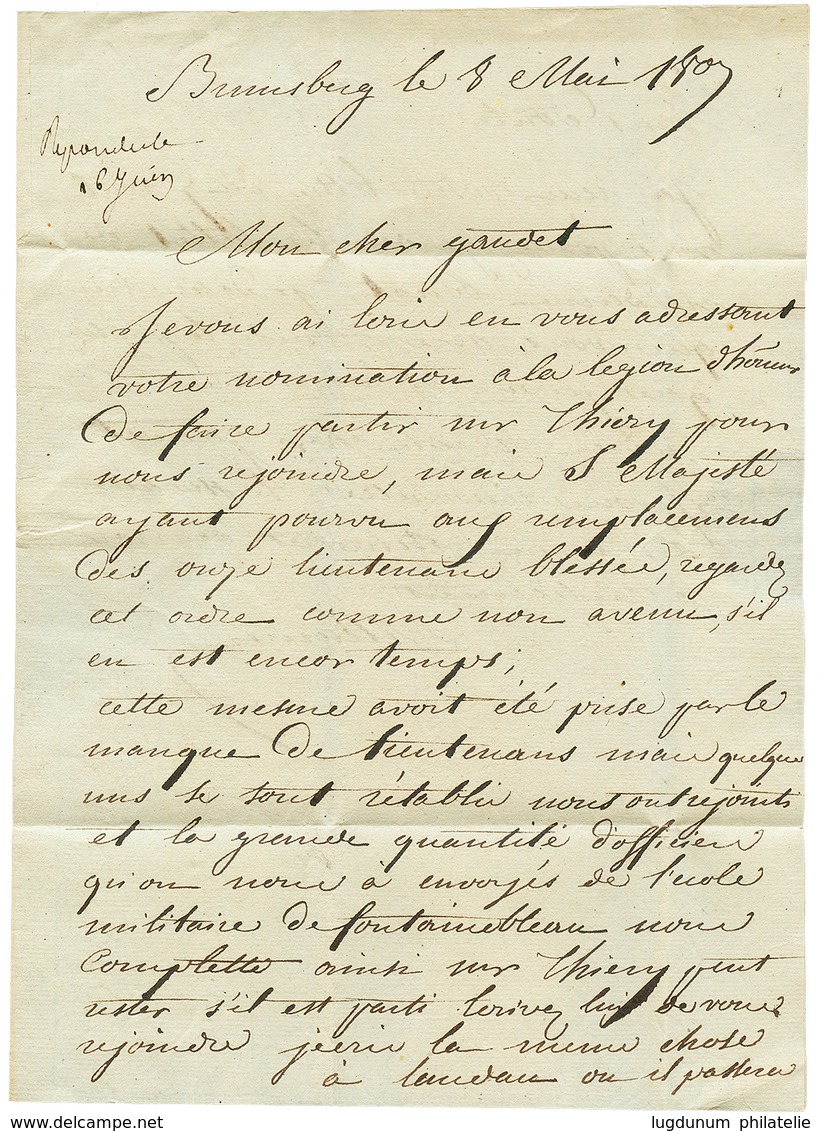 Brunsberg le 8 Mai 1807
Repondu le
16 Juin
Mon cher gaudet
Je vous ai écrit en vous adressant
votre nomination à la legion d'hôneur
de faire partir mr Thiery pour
nous rejoindre, mais S Majesté
ayant pourvu aux remplacemens
des onze lieutenans blessés, regardez
cet ordre comme non avenu, s'il
en est encor temps;
cette mesure avoit été prise par le
manque de lieutenans mais quelque
uns se sont rétablis nous ont rejoints
et la grande quantité d'officiers
qu'on nous à envoyés de l'ecole
militaire de fontainebleau nous
complette ainsi mr Thiery peut
rester s'il est parti écrivez lui de vous
rejoindre j'ecris la meme chose
à landau ou il passera
lugdunum philatelie